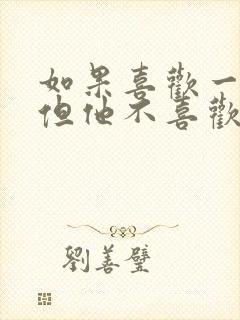 如果喜歡一
但他不喜歡
劉善璧